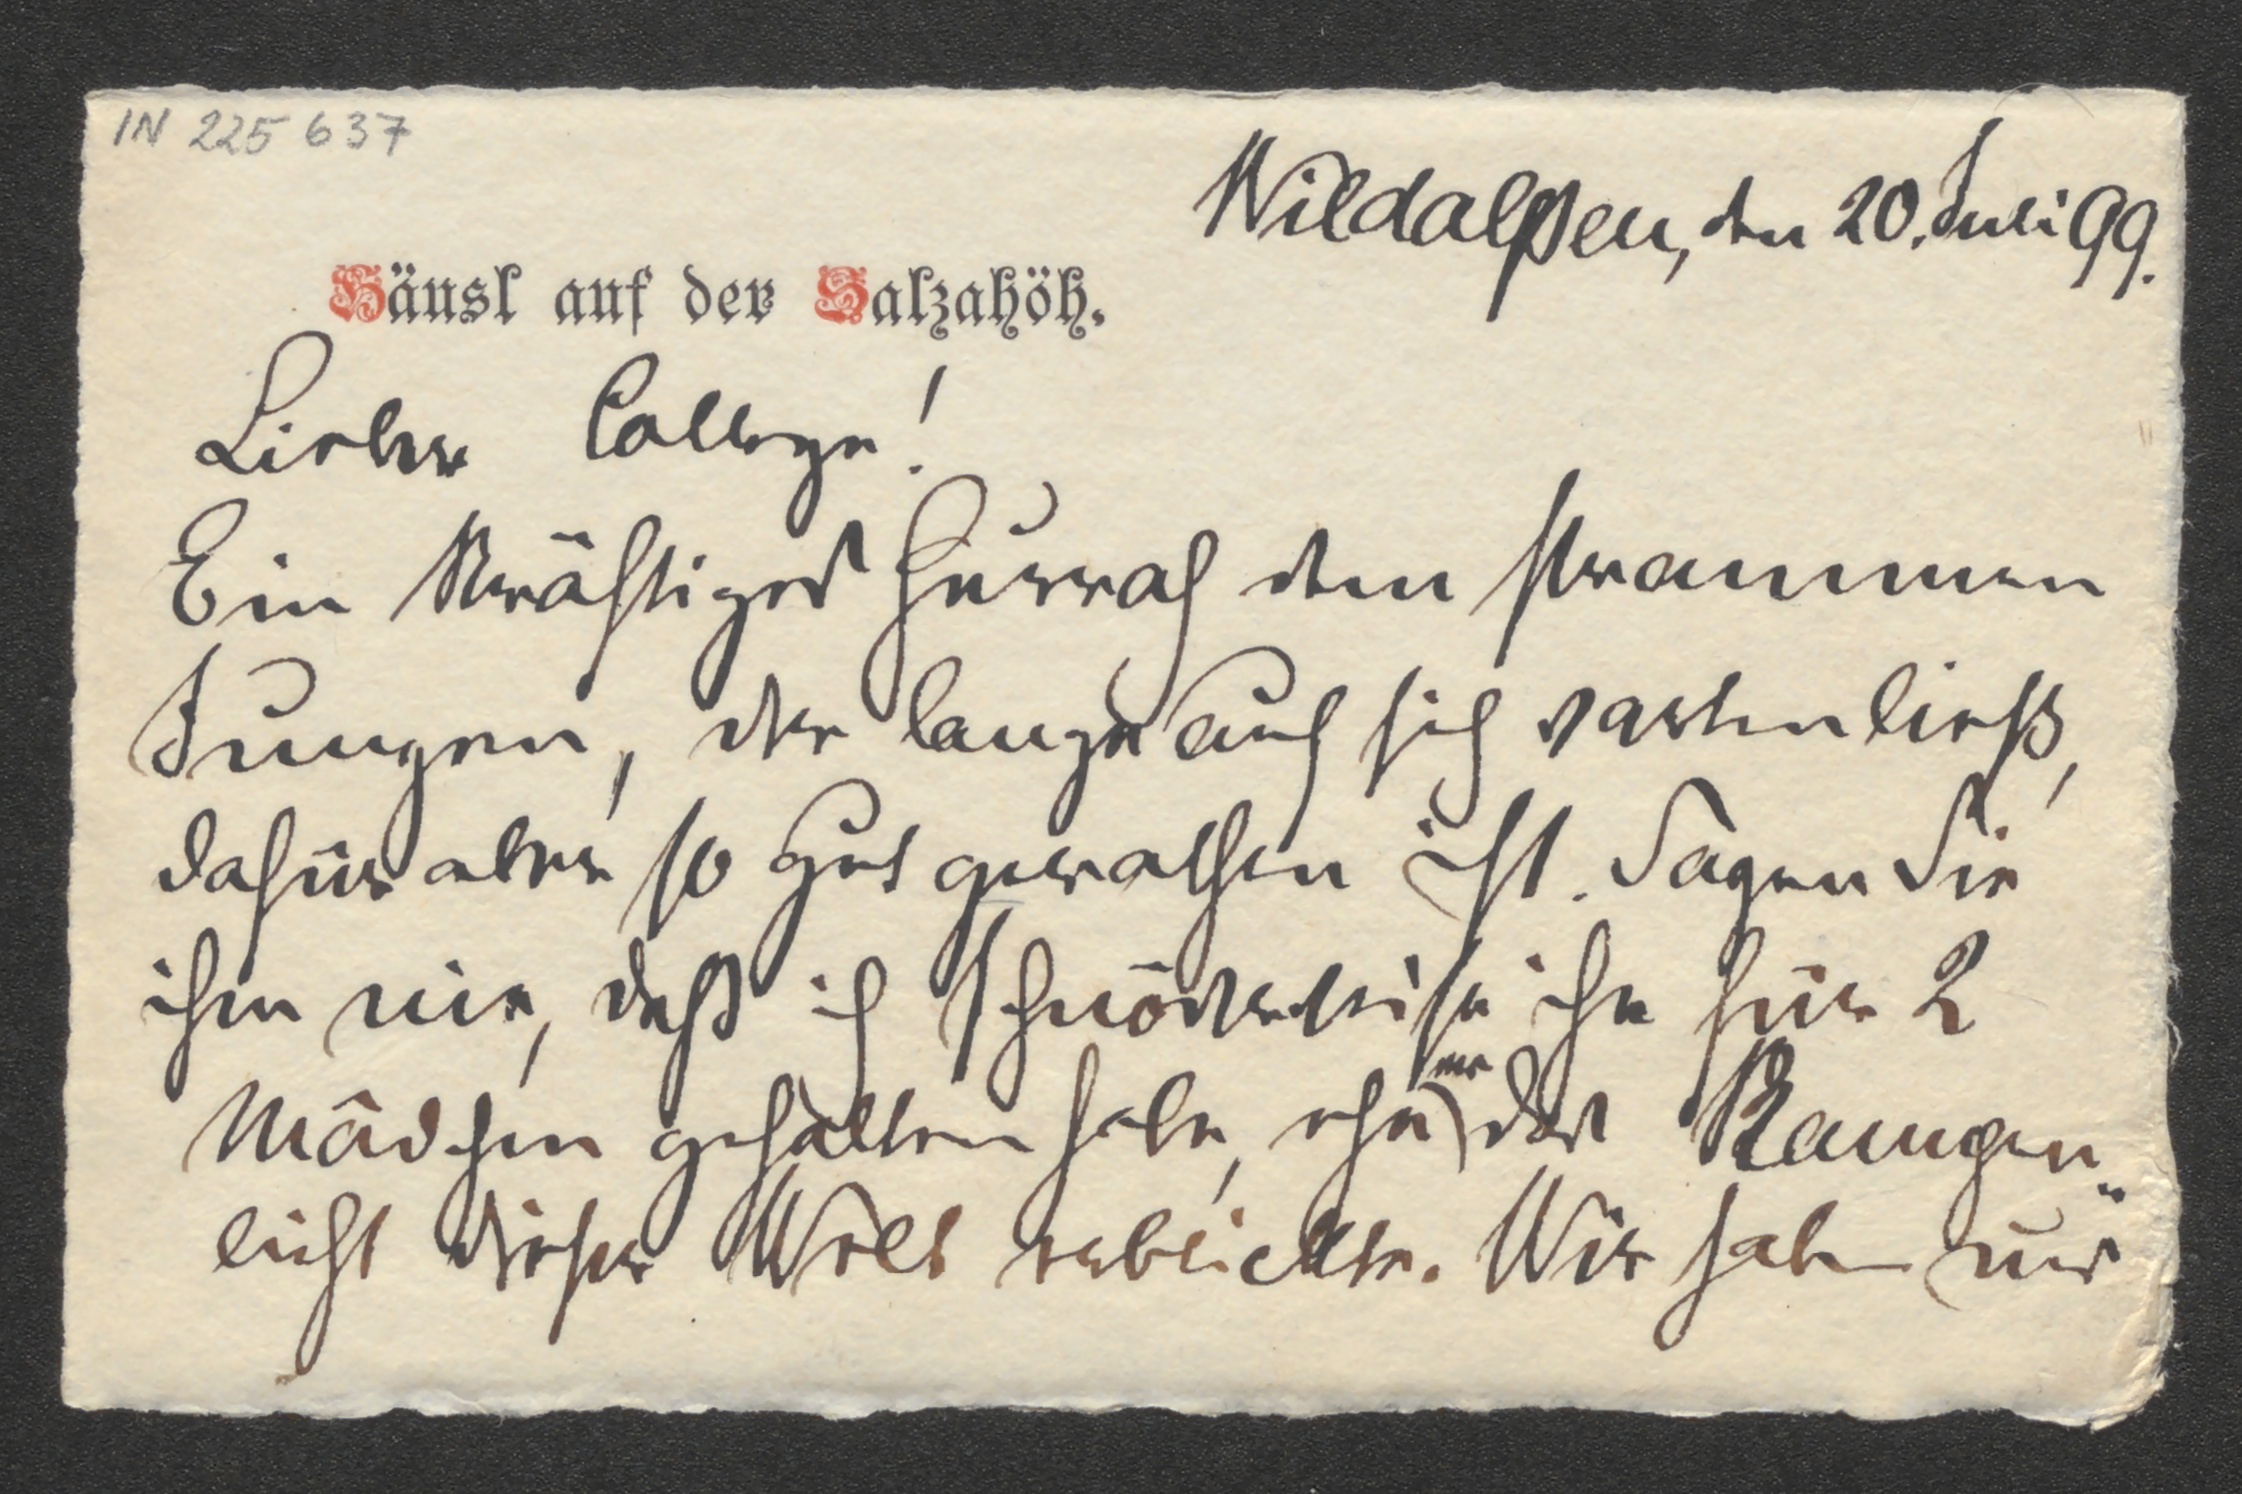 IN 225 637
Wildalpen, den 20. Juli 99.
Häusl auf der Salzahöh.
Lieber College!
Ein kräftiges Hurrah dem strammen
Jungen, der lange auf sich warten ließ,
dafür aber so gut gerathen ist. Sagen Sie
ihm nie, daß ich schnöderweise ihn für 2
Mädchen gehalten habe, ehe er das
licht dieser Welt erblickte. Wir haben uns